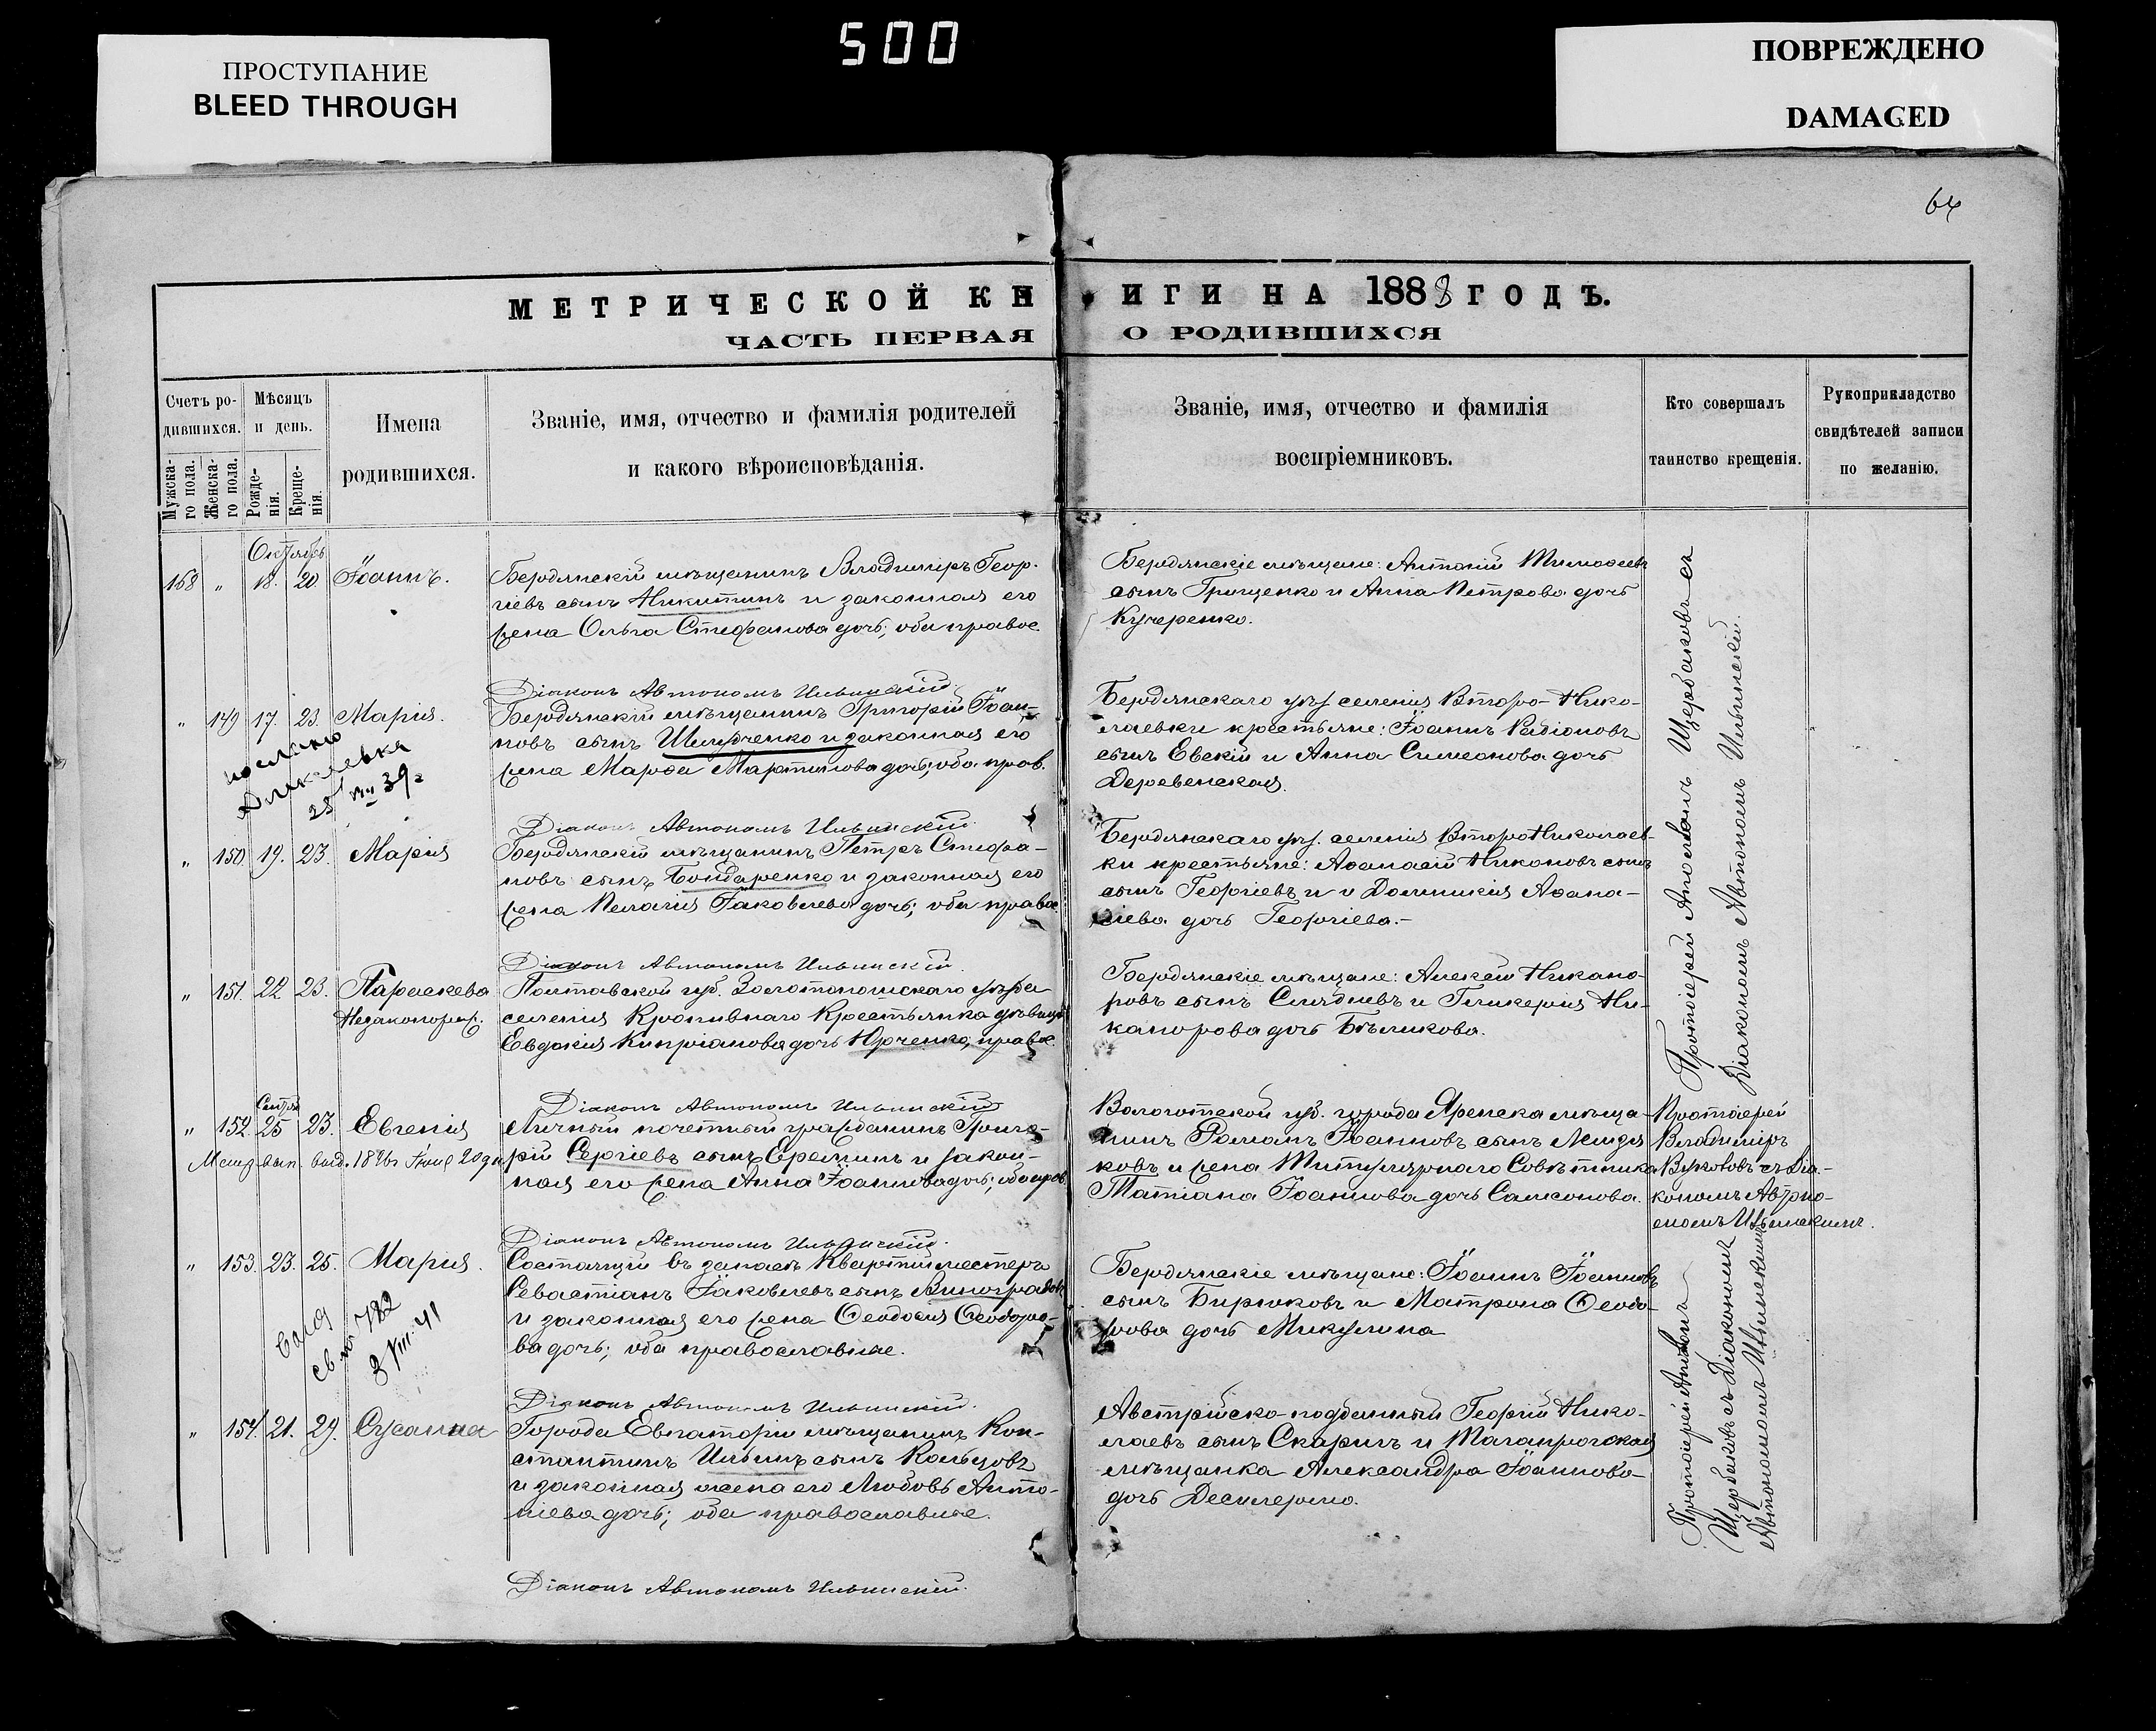 500
ПРОСТУПАНИЕ
BLEED THROUGH
ПОВРЕЖДЕНО
DAMAGED
64
МЕТРИЧЕСКОЙ КН ИГИ НА 1888 ГОДЪ.
ЧАСТЬ ПЕРВАЯ О РОДИВШИХСЯ
Счетъ ро-
дившихся.
Мужска-
го пола.
Женска-
го пола.
Мѣсяцъ
и день.
Рожде-
нія.
Креще-
нія.
Имена
родившихся.
Званіе, имя, отчество и фамилія родителей
и какого вѣроисповѣданія.
Званіе, имя, отчество и фамилія
воспріемниковъ.
Кто совершалъ
таинство крещенія.
Рукоприкладство
свидѣтелей записи
по желанію.
Октябрь
168 " 18. 20. Іоаннъ.
Бердянскій мѣщанинъ Владиміръ Геор-
гіевъ сынъ Никитинъ и законная его
жена Ольга Стефанова дочь; оба правос.
Бердянскіе мѣщане: Антоній Тимоѳеевъ
сынъ Грищенко и Анна Петрова дочь
Кучеренко.
Діаконъ Автономъ Ильинскій.
" 149 17. 23. Марія.
Бердянскій мѣщанинъ Григорій Іоан-
новъ сынъ и законная его
жена Марѳа Мартинова дочь; оба прав.
Бердянскаго уѣз. селенія Второ-Нико-
лаевки крестьяне: Іоаннъ Родіоновъ
сынъ Евскій и Анна Симеонова дочь
Деревенская.
послано
25/VIII 39г
Діаконъ Автономъ Ильинскій.
" 150 19. 23. Марія
Бердянскій мѣщанинъ Петръ Стефа-
новъ сынъ Бондаренко и законная его
жена Пелагія Іаковлева дочь; оба правос.
Бердянскаго уѣз. селенія ВтороНиколаев-
ки крестьяне: Аѳанасій Никоновъ сынъ
сынъ Георгіевъ и и Домникія Аѳана-
сіева дочь Георгіева.-
Діаконъ Автономъ Ильинскій.
" 151. 22 23. Параскева
Незаконорож.
Полтавской губ. Золотоношскаго уѣзда
селенія Кропивнаго Крестьянка дѣвица
Евдокія Кипріанова дочь Юрченко, правос.
Бердянскіе мѣщане: Алексѣй Никано-
ровъ сынъ и Гликерія Ни-
канорова дочь Бѣликова.
Протоіерей Щербаковъ съ
Діакономъ Автономомъ Ильинскій.
Діаконъ Автономъ Ильинскій
Сентяб
" 152. 25 23. Евгенія
Метр. вып. выд. 1896г Іюня 20 дня
Личный почетный гражданинъ Григо-
рій Сергіевъ сынъ Ереминъ и закон-
ная его жена Анна Іоаннова дочь; оба прав.
Вологотской губ. города Яренска мѣща-
нинъ Романъ Іоанновъ сынъ
ковъ и жена Титулярнаго Совѣтника
Татіана Іоаннова дочь Самсонова.
Протоіерей
Владиміръ
съ Діа-
кономъ Автоно-
момъ Ильинскимъ.
Діаконъ Автономъ Ильинскій.
" 153. 23. 25. Марія.
Состоящій въ запасѣ Квартирмистеръ
Севастіанъ Іаковлевъ сынъ Виноградовъ
и законная его жена Ѳеодосія Ѳеодоро-
ва дочь; оба православные.
Бердянскіе мѣщане: Іоаннъ Іоанновъ
сынъ Бирюковъ и Матрона Ѳеодо-
рова дочь Микулина
св. № 782
3 VIII. 41
Діаконъ Автономъ Ильинскій.
" 154. 21. 29. Сусанна
Города Евпаторіи мѣщанинъ Кон-
стантинъ Ильинъ сынъ Кольцовъ
и законная жена его Любовь Анто-
ніева дочь; оба православные.
Австрійско-подданный Георгій Нико-
лаевъ сынъ Скаричъ и Таганрогская
мѣщанка Александра Іоаннова
дочь
Протоіерей
Щербаковъ съ Діакономъ
Автономомъ Ильинскимъ
Діаконъ Автономъ Ильинскій.